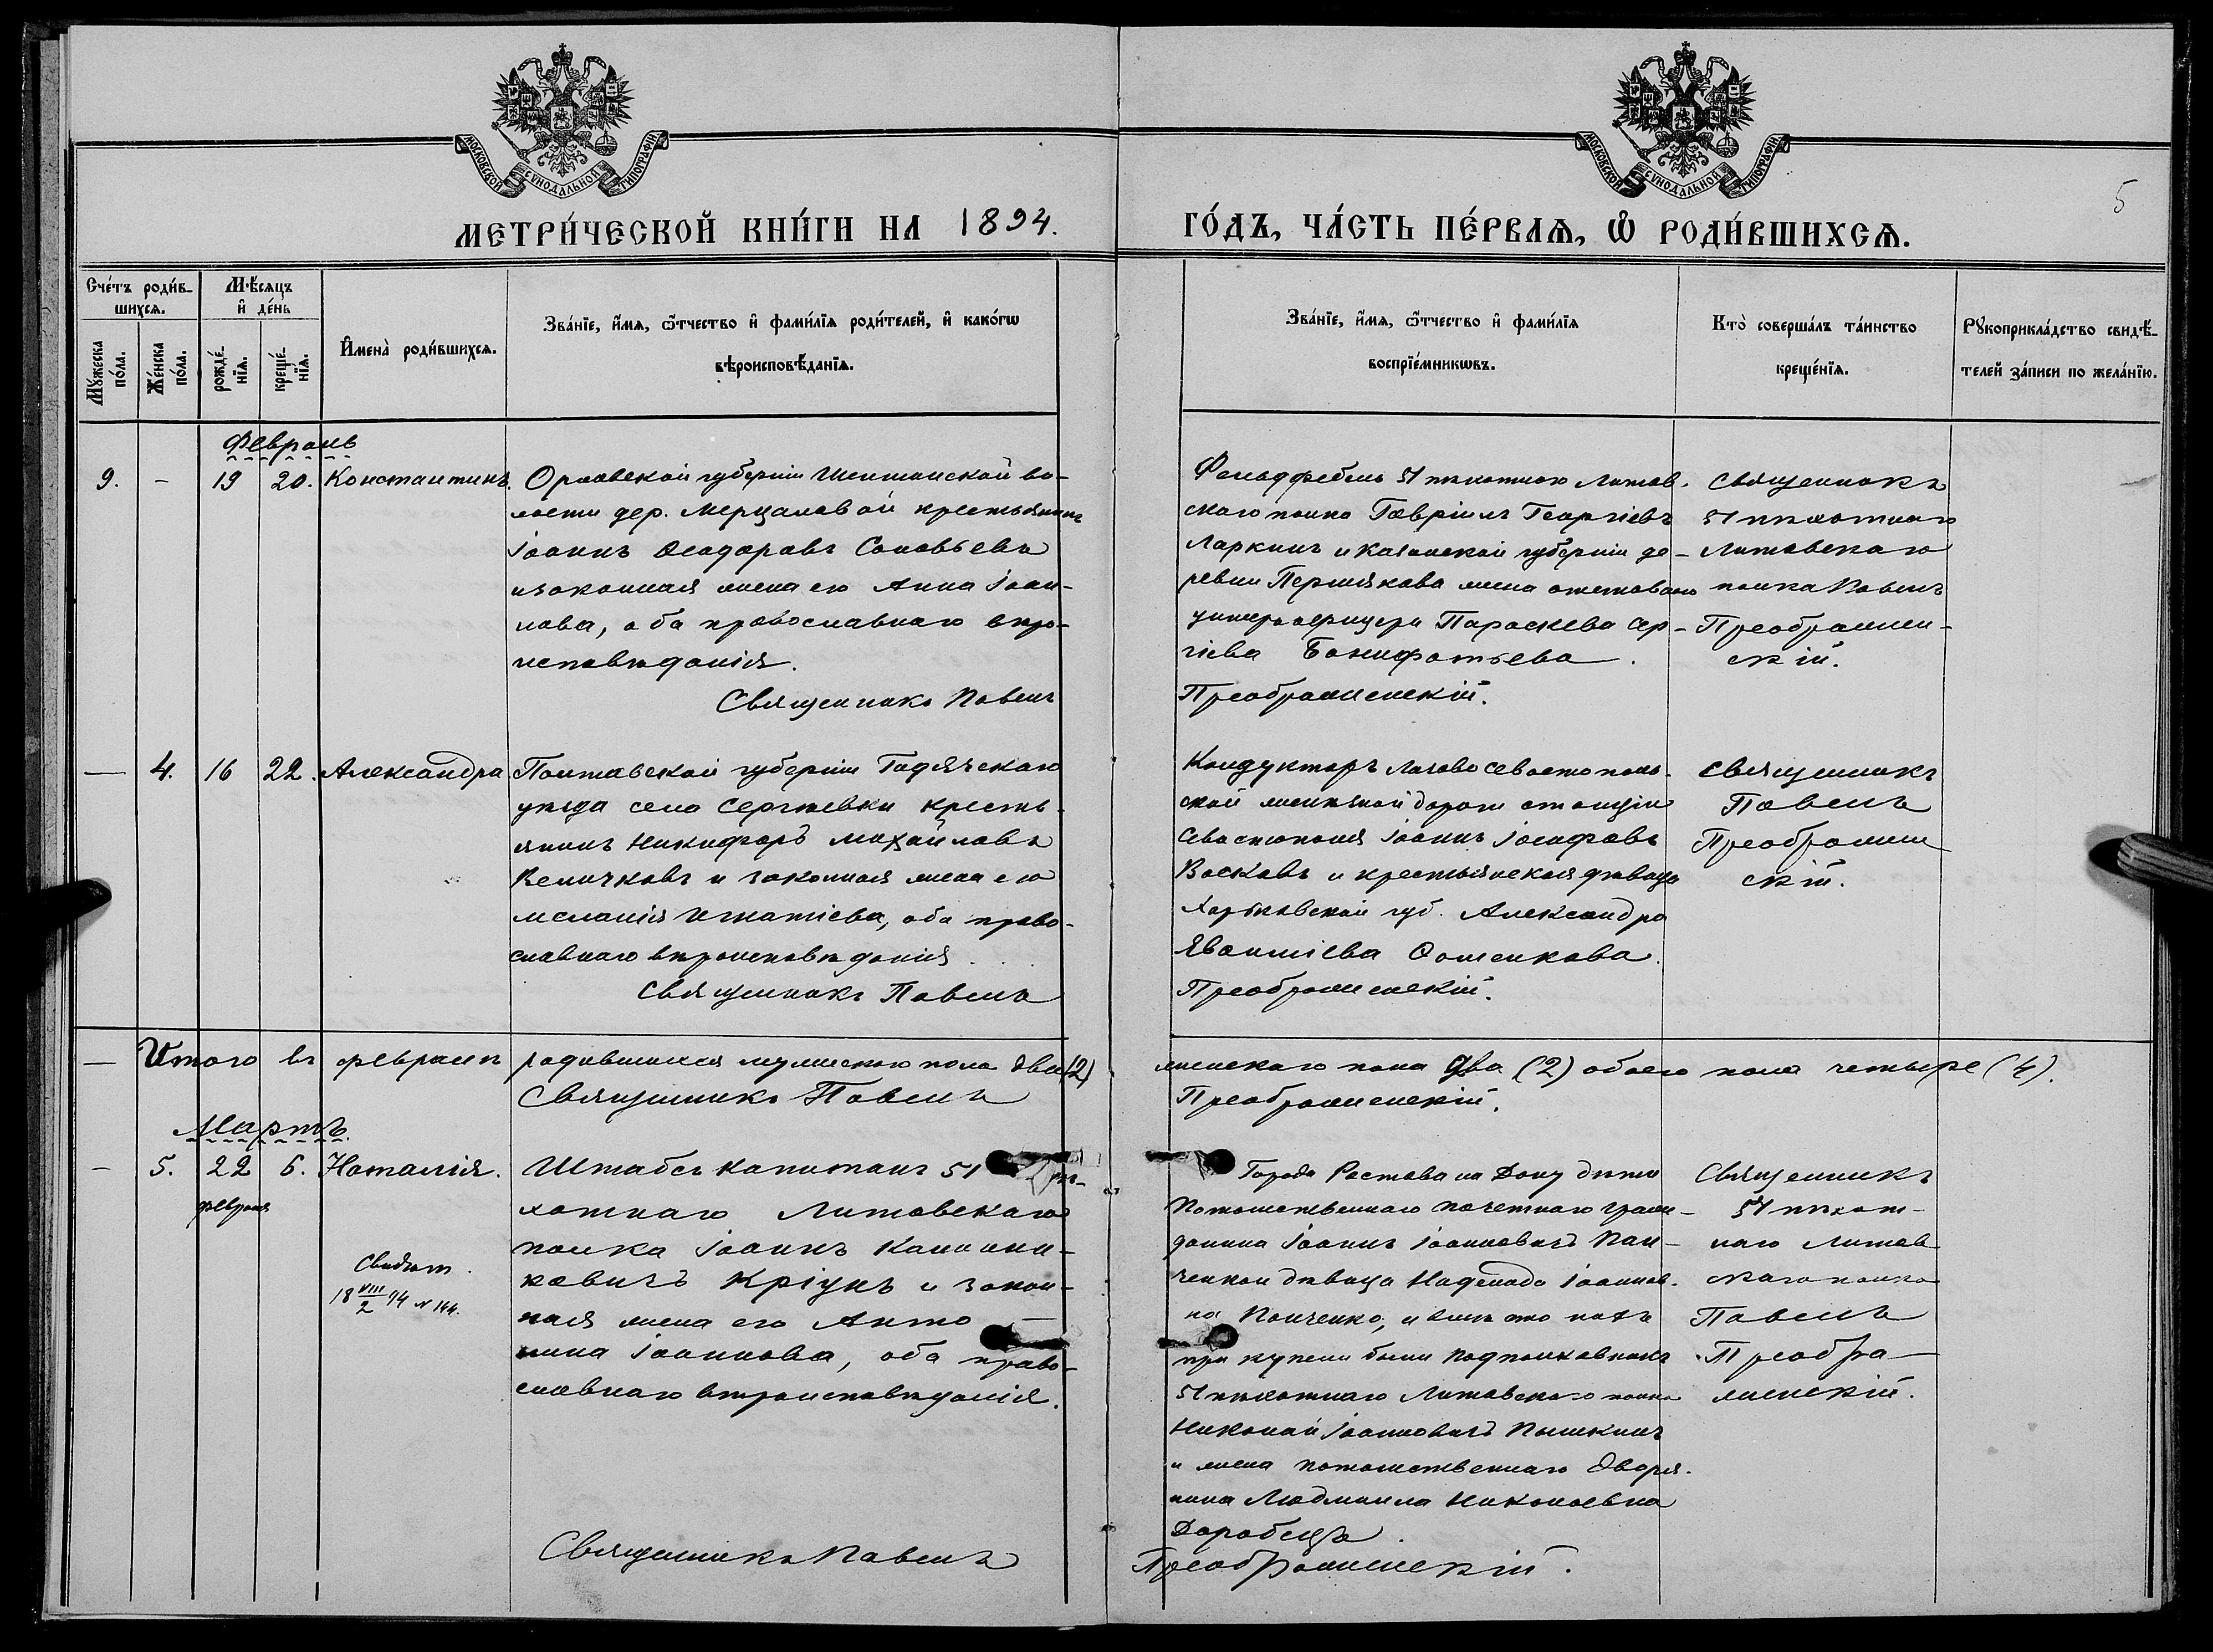 МОСКОВСКОЙ СѴНОДАЛЬНОЙ ТИПОГРАФІИ
МОСКОВСКОЙ СѴНОДАЛЬНОЙ ТИПОГРАФІИ
5
МЕТРИ́ЧЕСКОЙ КНИ́ГИ НА 1894. ГО́ДЪ, ЧА́СТЬ ПЕ́РВАѦ, Ѡ҆ РОДИ́ВШИХСѦ.
Сче́тъ роди́в-
шихсѧ.
Мѣ́сѧцъ
и҆ де́нь
Мꙋ́жеска
по́ла.
Же́нска
по́ла.
рожде́-
нїѧ.
креще́-
нїѧ.
И҆мена̀ роди́вшихсѧ.
Зва́нїе, и҆́мѧ, ѻ҆́тчество и҆ фами́лїѧ роди́телей, и҆ како́гѡ
вѣроисповѣ́данїѧ.
Зва́нїе, и҆́мѧ, ѻ҆́тчество и҆ фами́лїѧ
воспрїе́мникѡвъ.
Кто̀ соверша́лъ та́инство
креще́нїѧ.
Рꙋкоприкла́дство свидѣ́-
телей за́писи по жела́нїю.
Февраль
9. - 19 20. Константинъ.
Орловской губерніи во-
лости дер. Мерцаловой крестьянинъ
Іоаннъ Ѳеодоровъ Соловьевъ
и законная жена его Анна Іоан-
нова, оба православнаго вѣро-
исповѣданія.
Священникъ Павелъ
Фельдфебель 51 пѣхотнаго Литов-
скаго полка Гавріилъ Георгіевъ
Ларкинъ и Казанской губерніи де-
ревни Пермякова жена отставнаго
унтеръ офицера Параскева Сер-
гіева Бонифатьева.
Преображенскій.
Священникъ
51 пѣхотнаго
Литовскаго
полка Павелъ
Преображен-
скій.
— 4. 16 22. Александра
Полтавской губерніи Гадячскаго
уѣзда села Сергѣевки кресть-
янинъ Никифоръ Михайловъ
Величковъ и законная жена его
Меланія Игнатіева, оба право-
славнаго вѣроисповѣданія.
Священникъ Павелъ
Кондукторъ Лозово Севастополь-
ской желѣзной дороги станціи
Севастополя Іоаннъ Іосифовъ
Восковъ и крестьянская дѣвица
Харьковской губ. Александра
Ѳоменкова.
Преображенскій.
Священникъ
Павелъ
Преображен
скій.
— Итого въ февралѣ родившихся мужескаго пола два (2) женскаго пола два (2) обоего пола четыре (4).
Священникъ Павелъ
Преображенскій.
Мартъ.
- 5. 22 6. Наталія.
февраля
Свидѣт.
18 VIII/2 94 № 144.
Штабсъ капитанъ 51 пѣ-
хотнаго Литовскаго
полка Іоаннъ Каллини-
ковичъ Кріунъ и закон-
ная жена его Анто-
нина Іоаннова, оба право-
славнаго вѣроисповѣданія.
Священникъ Павелъ
Города Ростова на Дону дѣти
Потомственнаго почетнаго граж-
данина Іоаннъ Іоанновичъ Пан-
ченко и дѣвица Надежда Іоаннов-
на Панченко, и вмѣсто нихъ
при купели были подполковникъ
51 пѣхотнаго Литовскаго полка
Николай Іоанновичъ Пышкинъ
и жена потомственнаго дворя-
нина Людмила Николаевна
Доробецъ.
Преображенскій.
Священникъ
51 пѣхот-
наго Литов
скаго полка
Павелъ
Преобра-
женскій.